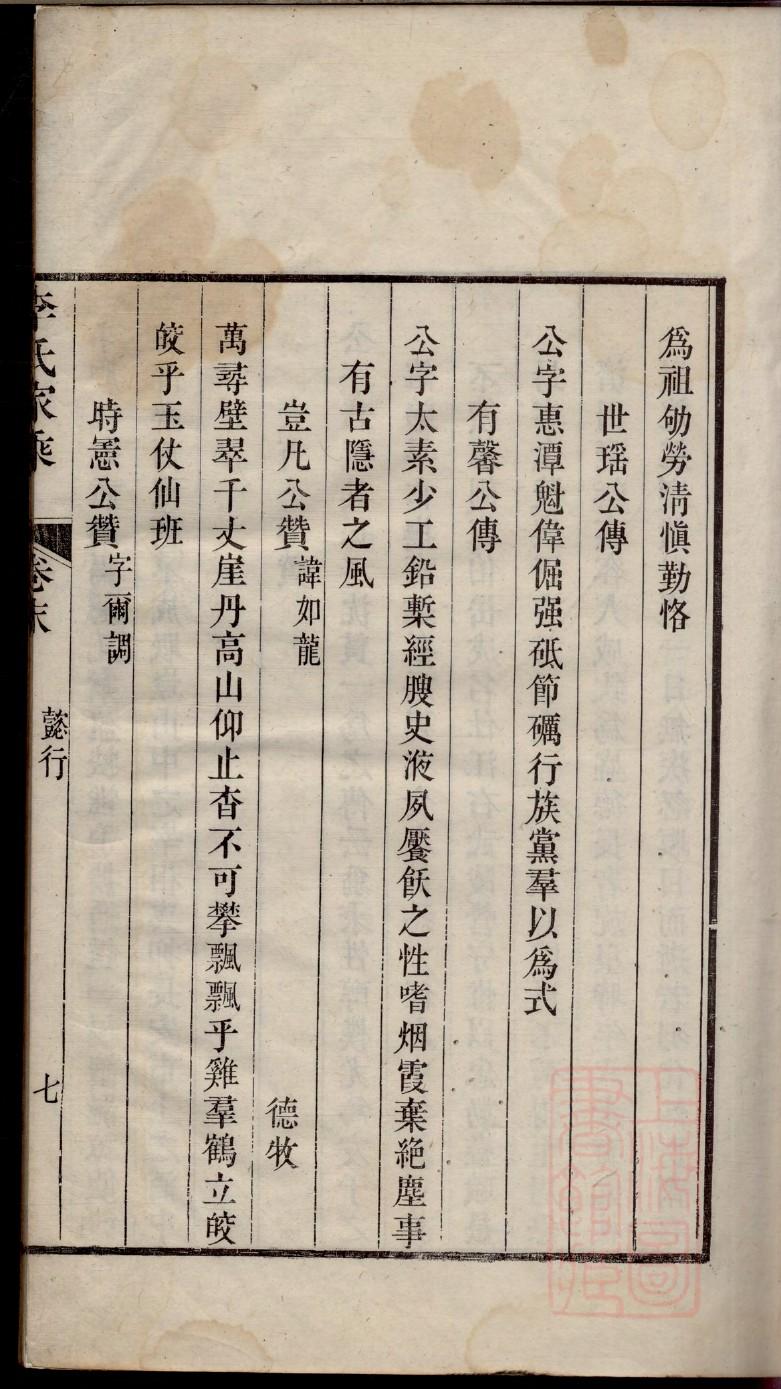 爲祖劬勞清愼勤恪
世瑶公傳
公字惠潭魁偉倔强砥節礪行族黨羣以爲式
有馨公傳
公字太素少工鉛槧經膄史液夙饜飫之性嗜烟霞棄絶塵事
有古隱者之風
豈凡公贊 諱如龍 德牧
萬尋壁翠千丈崖丹高山仰止杳不可攀飄飄乎雞羣鶴立皎
皎乎玉仗仙班
時憲公贊 字爾調
李氏家乘 卷末 懿行 七